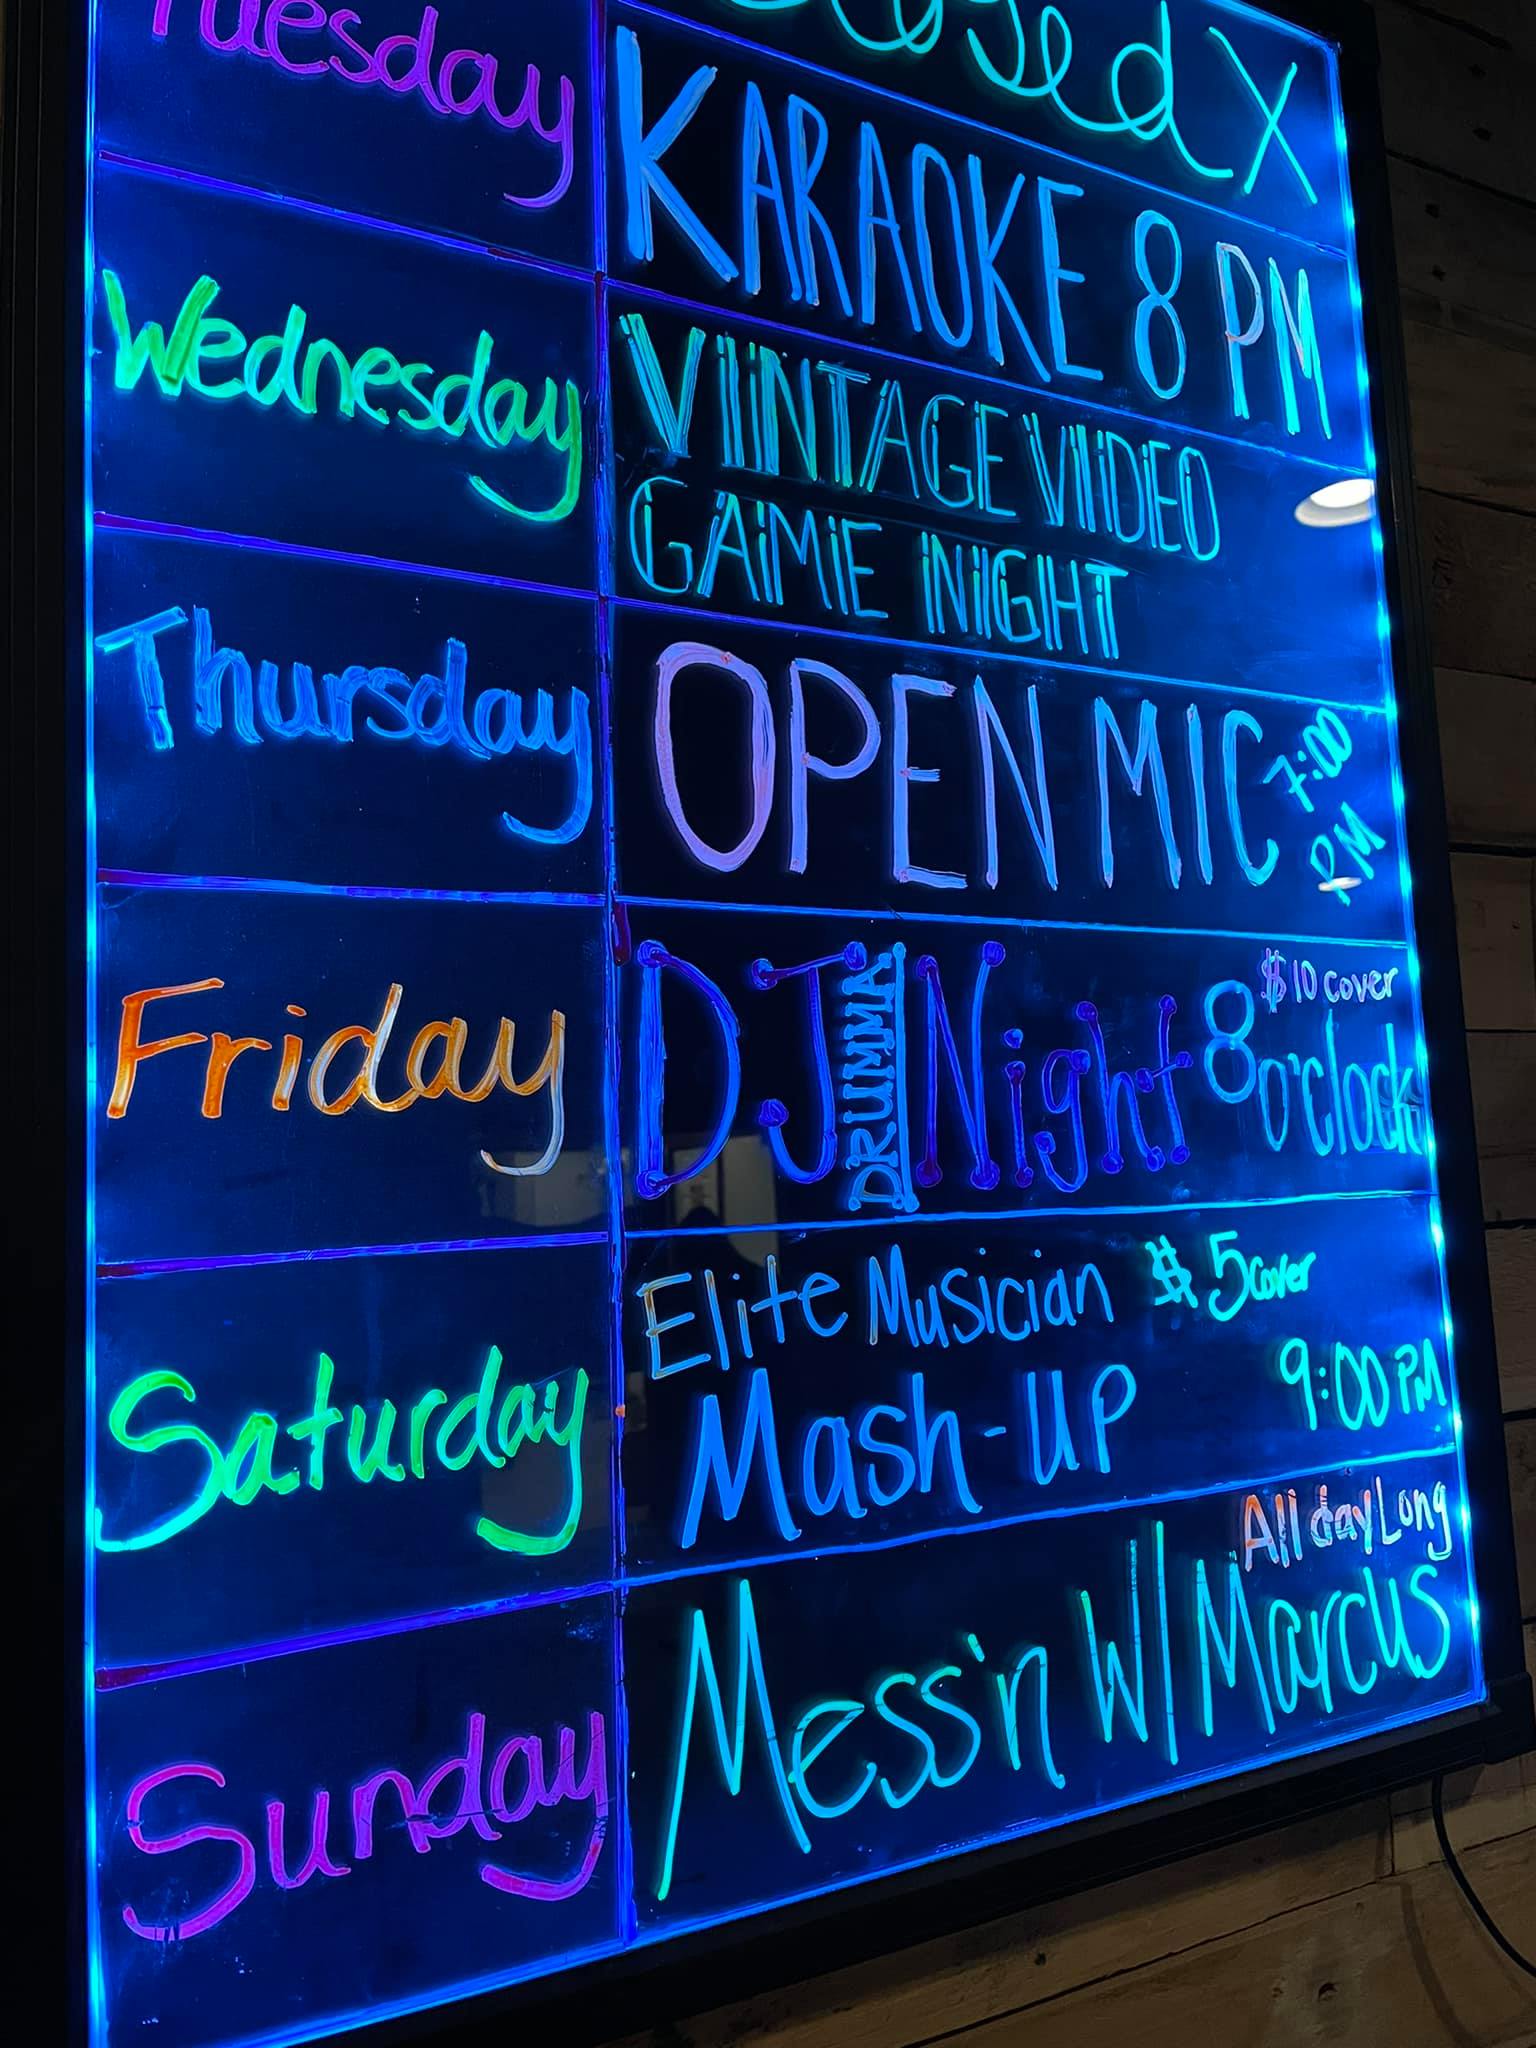 Closed X
Tuesday
KARAOKE 8 PM
Wednesday
VINTAGE VIDEO
GAME NIGHT
Thursday
OPEN MIC 7:00
PM
Friday
DJ DRUMMA Night 8 o'clock
$10 cover
Saturday
Elite Musician $5 cover
Mash-UP 9:00 PM
Sunday
All day Long
Mess'n W/ Marcus